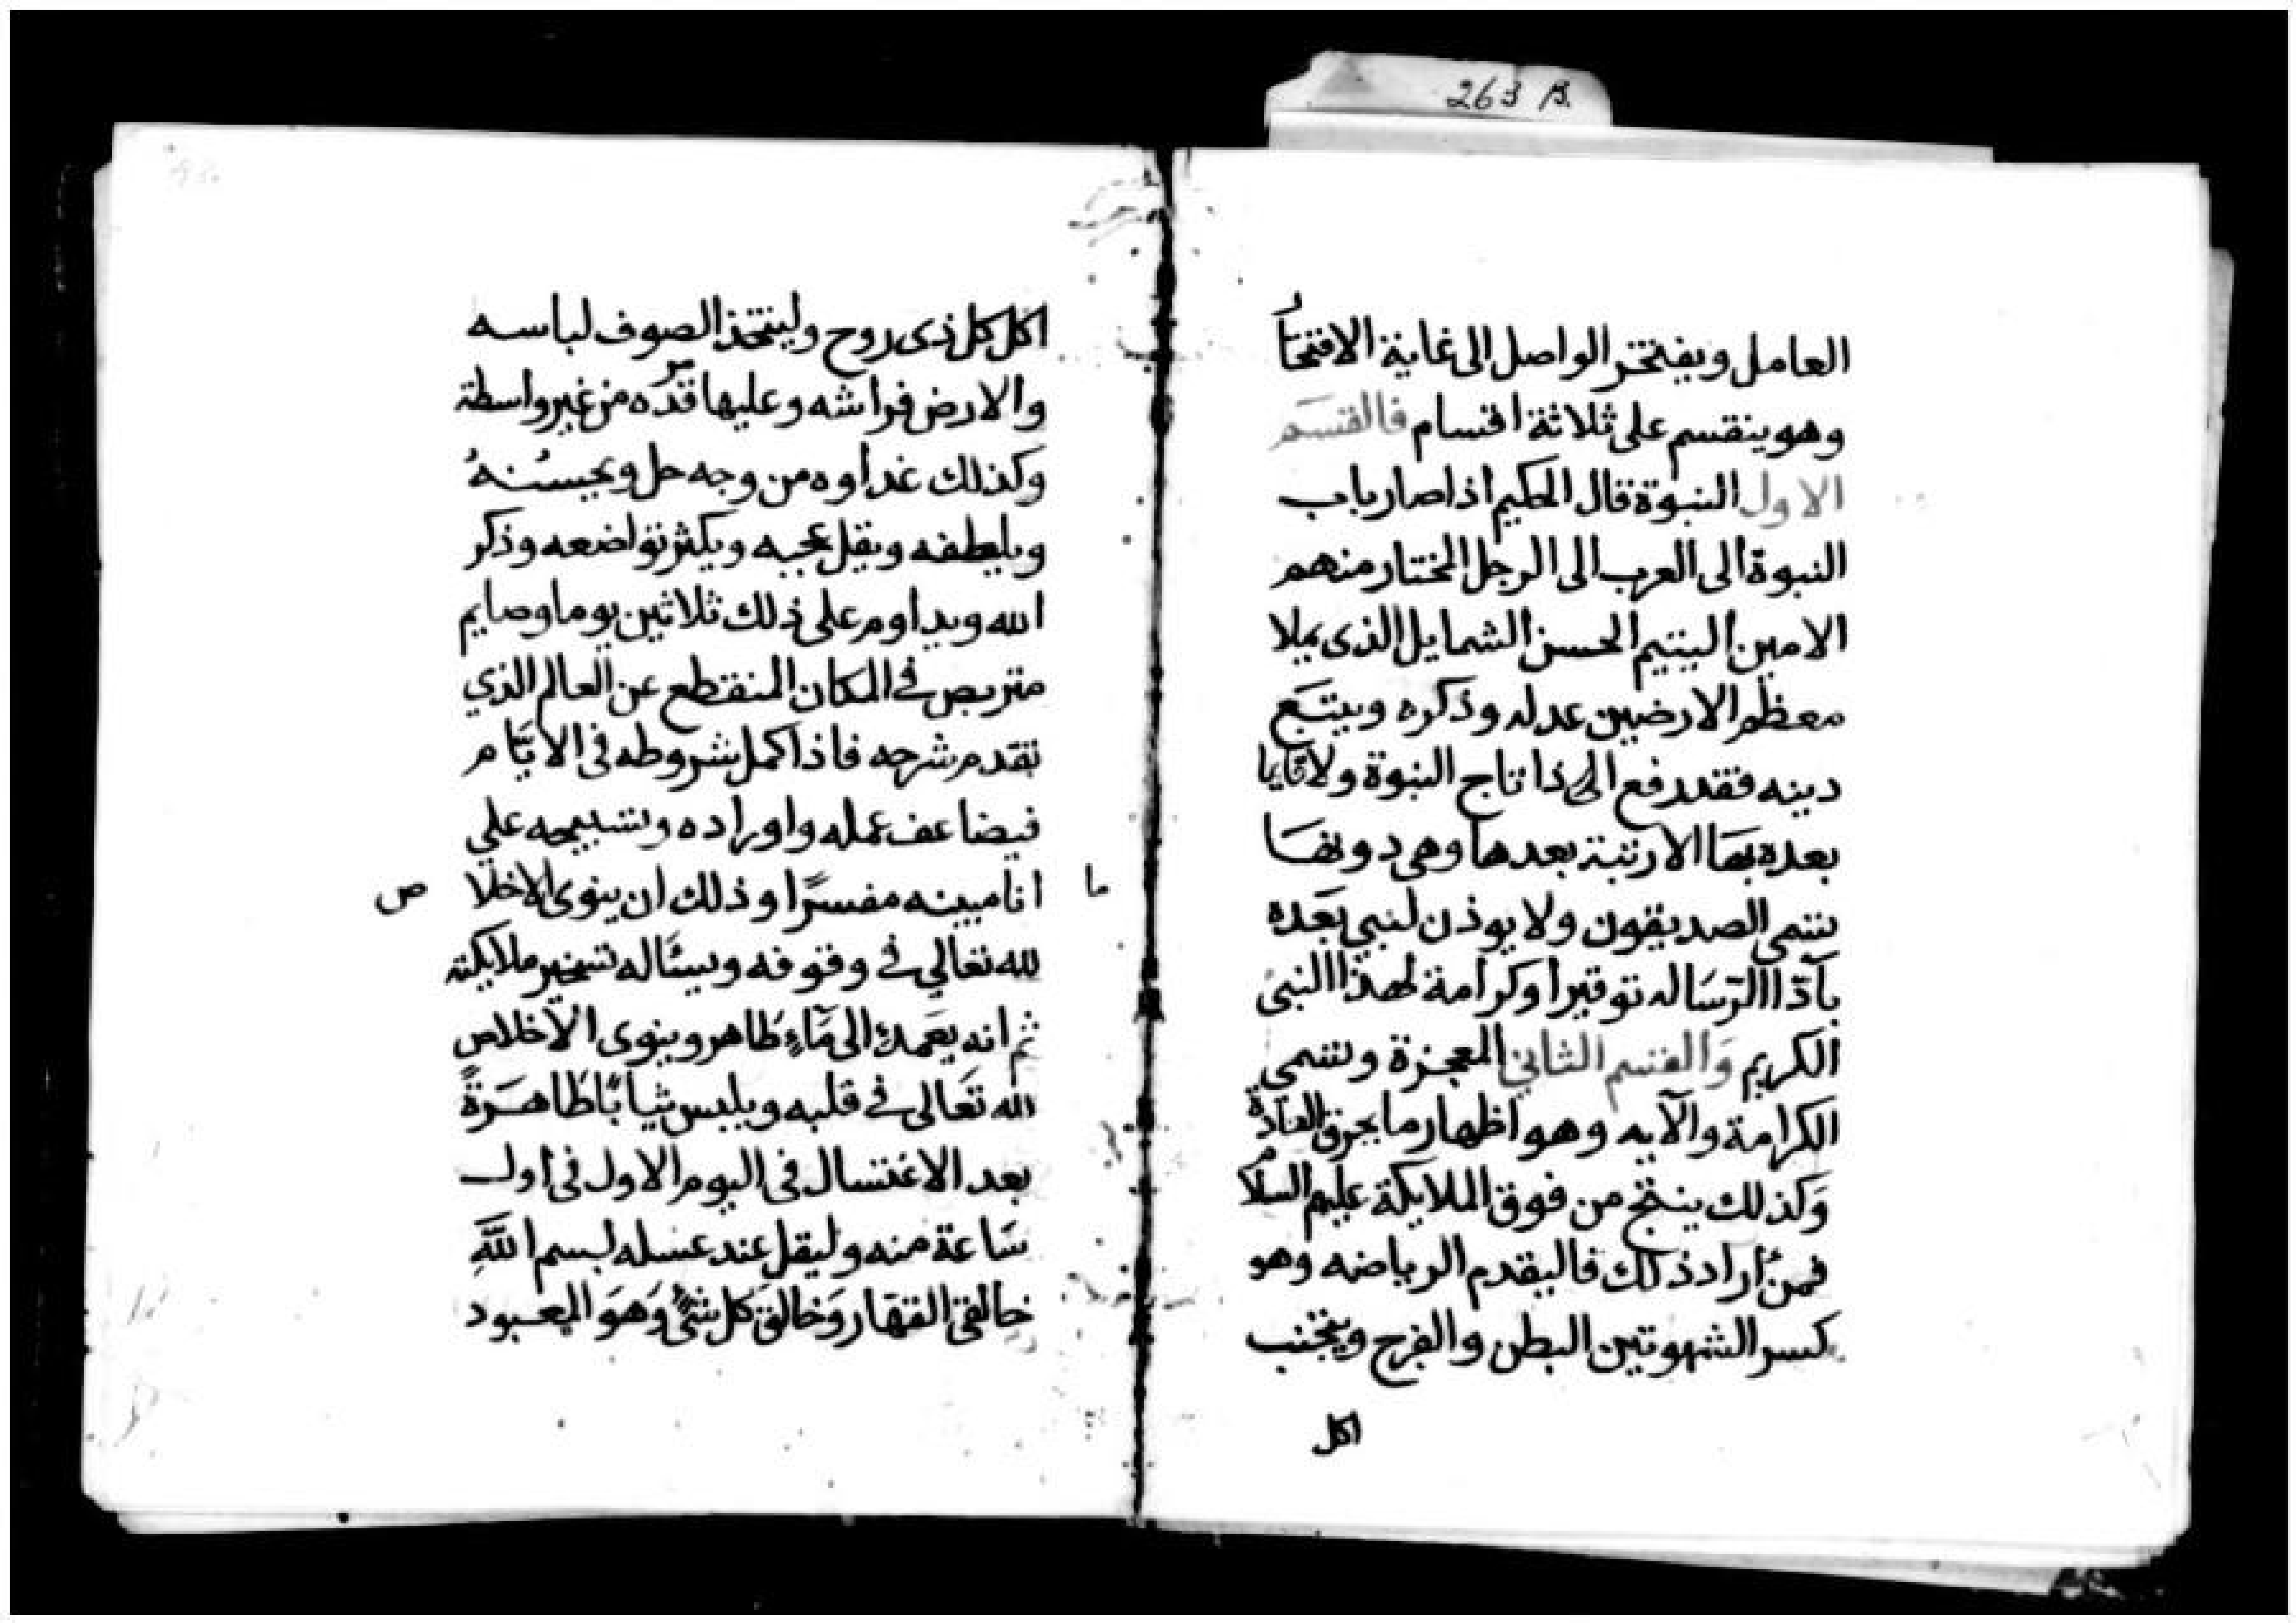 263 B.
العامل ويفتخر الواصل الى غاية الافتخار
وهو ينقسم على ثلاثة اقسام فالقسم
الاول النبوة قال الحكيم اذا صار باب
النبوة الى العرب الى الرجل المختار منهم
الامين اليتيم الحسن الشمايل الذى يملا
معظم الارضين عدله وذكره ويتبع
دينه فقد دفع الى ذا تاج النبوة ولا
بعده بها الا رتبة بعدها وهى دونها
تسمى الصديقون ولا يوذن لنبي بعده
بآدّا الرّسَاله توقيرا وكرامة لهذا النبى
الكريم وَالقسم الثاني المعجزة وتسمى
الكرامة والآيه وهو اظهار ما يخرق العادة
وَكذلك ينتج من فوق الملايكة عليهم السلام
فمن أراد ذلك فاليقدم الرياضه وهو
كسر الشهوتين البطن والفرج ويتجنب
اكل
اكل كل ذى روح وليتخذ الصوف لباسه
والارض فراشه وعليها من غير واسطة
وكذلك غداوه من وجه حل ويحسنهُ
ويلطفه ويقل عجبه ويكثر تواضعه وذكر
الله ويداوم على ذلك ثلاثين يوما وصايم
متربص في المكان المنقطع عن العالم الذي
تقدم شرحه فاذا كمل شروطه فى الايّام
فيضاعف عمله واوراده وتسبيحه علي
ما
انا مبينه مفسرًا وذلك ان ينوى الاخلا ص
لله تعالي في وقوفه ويسئاله تسخير ملايكته
ثم انه يعمد الى مآءٍ طَاهر وينوى الآخلاص
لله تعَالى في قلبه ويلبس ثيابًا طَاهَرَةً
بعد الاغتسال فى اليوم الاول فى اول
سَاعة منه وليقل عند غسله بسم اللَّهِ
خالقى القهّار وَخالق كل شئٍ وَهوَ المعبود